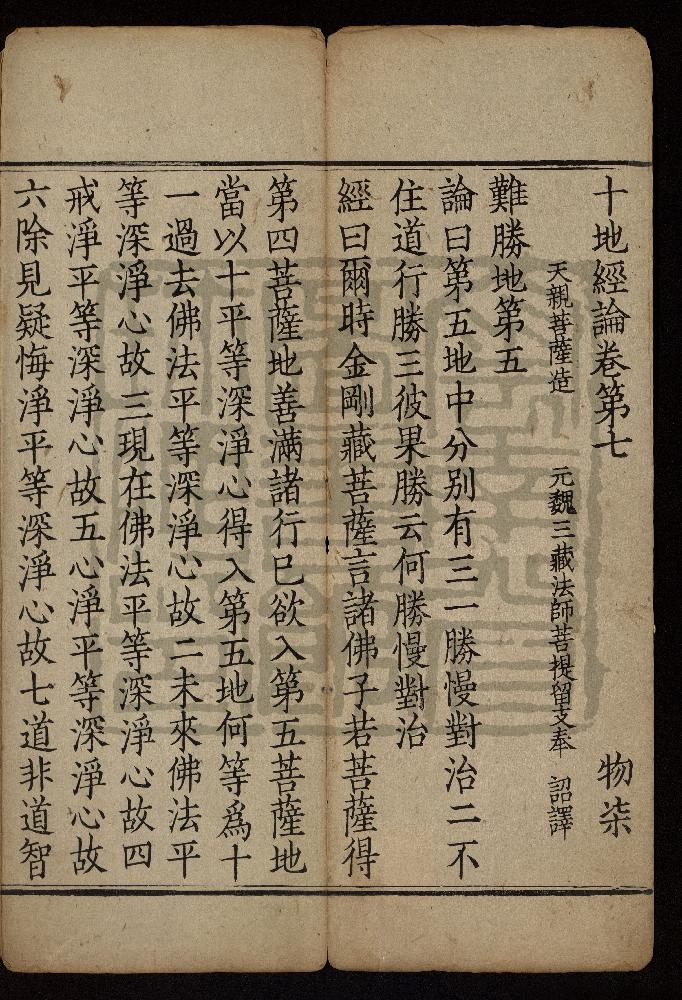 十地經論卷第七　物柒
天親菩薩造　元魏三藏法師菩提留支奉　詔譯
難勝地第五
論曰第五地中分别有三一勝慢對治二不
住道行勝三彼果勝云何勝慢對治
經曰爾時金剛藏菩薩言諸佛子若菩薩得
第四菩薩地善滿諸行已欲入第五菩薩地
當以十平等深淨心得入第五地何等爲十
一過去佛法平等深淨心故二未來佛法平
等深淨心故三現在佛法平等深淨心故四
戒淨平等深淨心故五心淨平等深淨心故
六除見疑悔淨平等深淨心故七道非道智